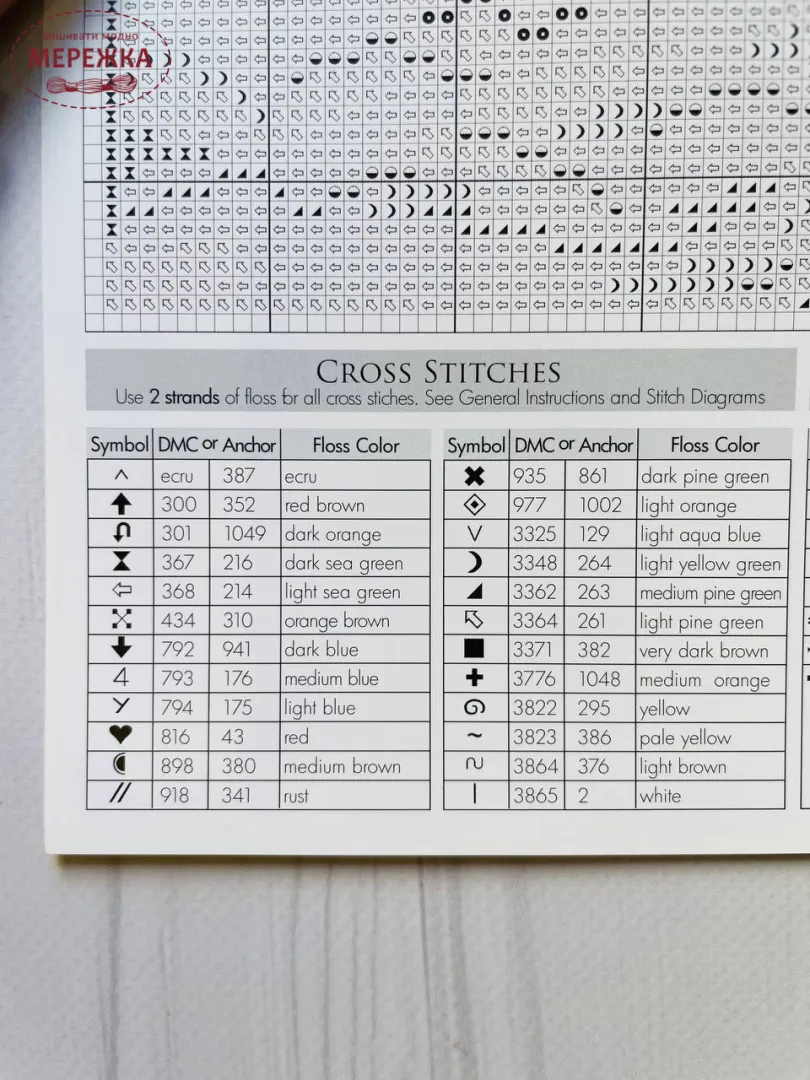 вишивати модно
МЕРЕЖКА
CROSS STITCHES
Use 2 strands of floss for all cross stiches. See General Instructions and Stitch Diagrams
Symbol DMC or Anchor Floss Color
ecru 387 ecru
300 352 red brown
301 1049 dark orange
367 216 dark sea green
368 214 light sea green
434 310 orange brown
792 941 dark blue
793 176 medium blue
794 175 light blue
816 43 red
898 380 medium brown
918 341 rust
Symbol DMC or Anchor Floss Color
935 861 dark pine green
977 1002 light orange
3325 129 light aqua blue
3348 264 light yellow green
3362 263 medium pine green
3364 261 light pine green
3371 382 very dark brown
3776 1048 medium orange
3822 295 yellow
3823 386 pale yellow
3864 376 light brown
3865 2 white